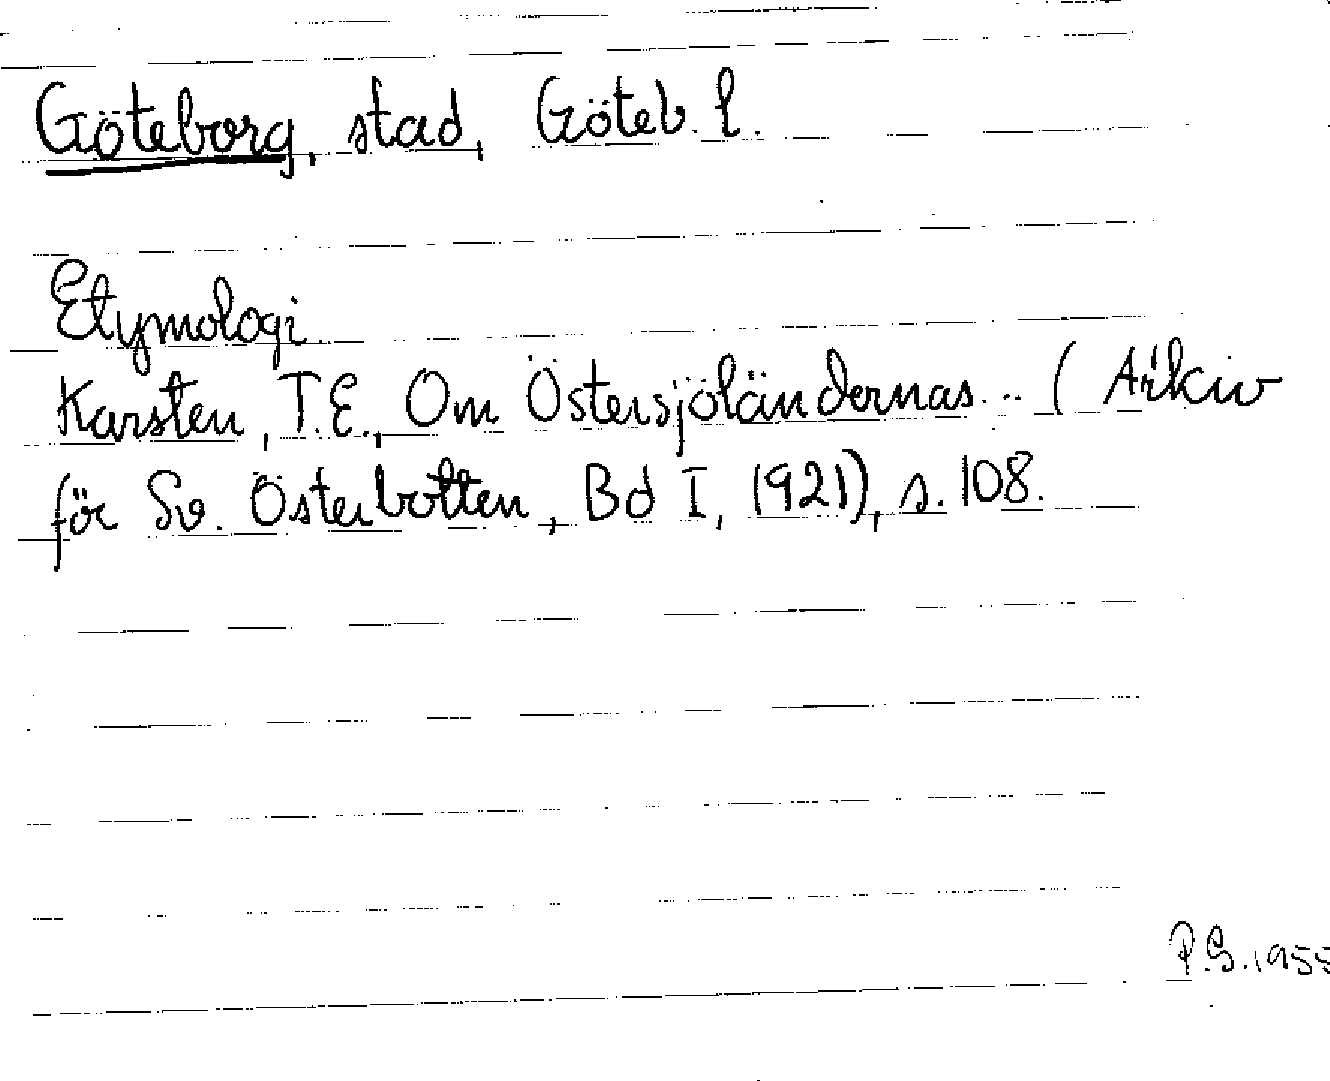 Göteborg, stad, Göteb. l.
Etymologi.
Karsten, T.E., Om Östersjöländernas... (Arkiv
för Sv. Österbotten, Bd I, (1921)), s. 108.
P.S. 1955